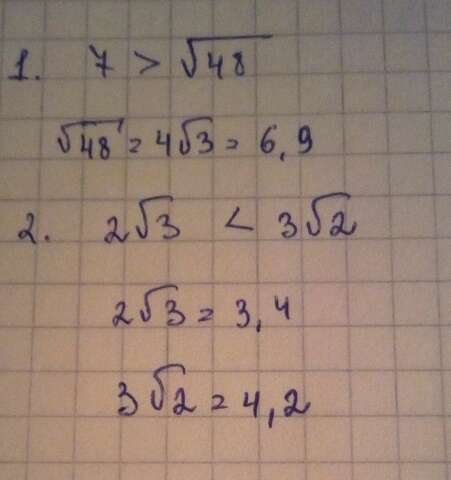 1. 7 > √48
√48 = 4√3 = 6,9
2. 2√3 < 3√2
2√3 = 3,4
3√2 = 4,2